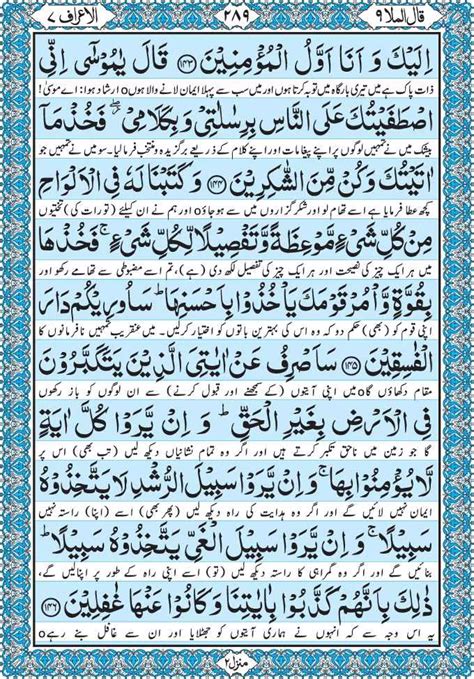 قال الملا ٩
٢٨٩
الاعراف ٧
اِلَيْكَ وَ اَنَا اَوَّلُ الْمُؤْمِنِيْنَ ﴿۱۴۳﴾ قَالَ يٰمُوْسٰۤى اِنِّي
ذات پاک ہے میں تیری بارگاہ میں توبہ کرتا ہوں اور میں سب سے پہلا ایمان لانے والا ہوںo ارشاد ہوا: اے موسٰی!
اصْطَفَيْتُكَ عَلَى النَّاسِ بِرِسٰلٰتِيْ وَ بِكَلَامِيْ ۖ فَخُذْ مَاۤ
بیشک میں نے تمہیں لوگوں پر اپنے پیغامات اور اپنے کلام کے ذریعے برگزیدہ و منتخب فرما لیا۔ سو میں نے تمہیں جو
اٰتَيْتُكَ وَ كُنْ مِّنَ الشّٰكِرِيْنَ ﴿۱۴۴﴾ وَ كَتَبْنَا لَهٗ فِي الْاَلْوَاحِ
کچھ عطا فرمایا ہے اسے تھام لو اور شکر گزاروں میں سے ہو جاؤo اور ہم نے ان کیلئے (تورات کی) تختیوں
مِنْ كُلِّ شَيْءٍ مَّوْعِظَةً وَّ تَفْصِيْلًا لِّكُلِّ شَيْءٍ ۚ فَخُذْهَا
میں ہر ایک چیز کی نصیحت اور ہر ایک چیز کی تفصیل لکھ دی (ہے)، تم اسے مضبوطی سے تھامے رکھو اور
بِقُوَّةٍ وَّ اْمُرْ قَوْمَكَ يَاْخُذُوْا بِاَحْسَنِهَا ؕ سَاُورِيْكُمْ دَارَ
اپنی قوم کو (بھی) حکم دو کہ وہ اس کی بہترین باتوں کو اختیار کرلیں۔ میں عنقریب تمہیں نافرمانوں کا
الْفٰسِقِيْنَ ﴿۱۴۵﴾ سَاَصْرِفُ عَنْ اٰيٰتِيَ الَّذِيْنَ يَتَكَبَّرُوْنَ
مقام دکھاؤں گاo میں اپنی آیتوں (کے سمجھنے اور قبول کرنے) سے ان لوگوں کو باز رکھوں
فِي الْاَرْضِ بِغَيْرِ الْحَقِّ ؕ وَ اِنْ يَّرَوْا كُلَّ اٰيَةٍ
گا جو زمین میں ناحق تکبر کرتے ہیں اور اگر وہ تمام نشانیاں دیکھ لیں (تب بھی) اس پر
لَّا يُؤْمِنُوْا بِهَا ۚ وَ اِنْ يَّرَوْا سَبِيْلَ الرُّشْدِ لَا يَتَّخِذُوْهُ
ایمان نہیں لائیں گے اور اگر وہ ہدایت کی راہ دیکھ لیں (پھر بھی) اسے (اپنا) راستہ نہیں
سَبِيْلًا ۚ وَ اِنْ يَّرَوْا سَبِيْلَ الْغَيِّ يَتَّخِذُوْهُ سَبِيْلًا ؕ
بنائیں گے اور اگر وہ گمراہی کا راستہ دیکھ لیں (تو) اسے اپنی راہ کے طور پر اپنالیں گے،
ذٰلِكَ بِاَنَّهُمْ كَذَّبُوْا بِاٰيٰتِنَا وَ كَانُوْا عَنْهَا غٰفِلِيْنَ ﴿۱۴۶﴾
یہ اس وجہ سے کہ انہوں نے ہماری آیتوں کو جھٹلایا اور ان سے غافل بنے رہےo
منزل ۲